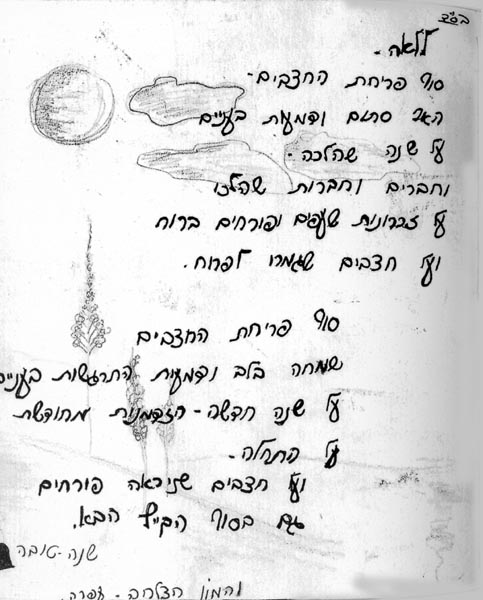 בס״ד
ללאה.
סוף פריחת החצבים-
האף סתום ודמעות בעיניים
על שנה שהלכה-
וחברים וחברות שהלכו
על זכרונות שעפים ופורחים ברוח
ועל חצבים שגמרו לפרוח.
סוף פריחת החצבים
שמחה בלב ודמעות התרגשות בעיניים
על שנה חדשה - הזדמנות מחודשת
על התחלה.
ועל חצבים שניראה פורחים
גם בסוף הקייץ הבא.
שנה-טובה
והמון הצלחה - עפרה.